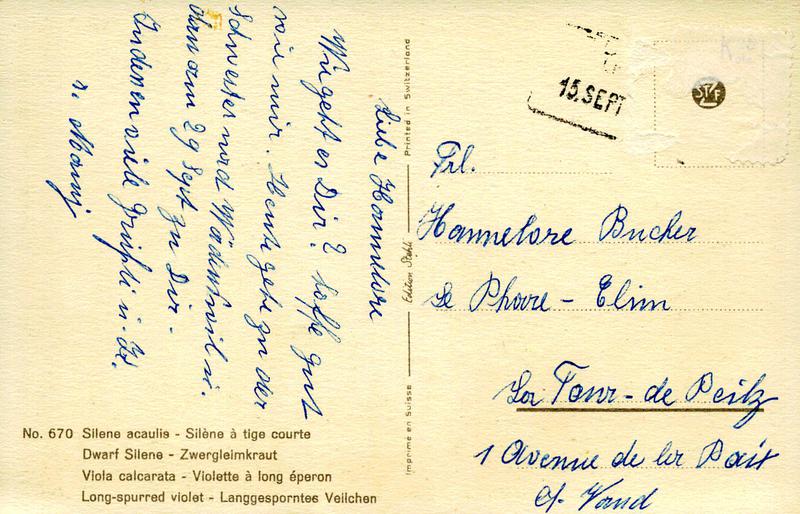 Liebe Hannelore
Wie geht es Dir? hoffe gut
wie mir. Heute gehe zu der
Schwester nach Wädenswil u.
dann am 29 Sept zu Dir.
Indessen viele Grüssli u.
v. Mami
No. 670 Silene acaulis - Silène à tige courte
Dwarf Silene - Zwergleimkraut
Viola calcarata - Violette à long éperon
Long-spurred violet - Langgesporntes Veilchen
Imprimé en Suisse
Edition Stehli
Printed in Switzerland
15.SEPT
STF
Frl.
Hannelore Bucher
Le Phare - Elim
La Tour - de Peilz
1 Avenue de la Paix
Ct. Vaud